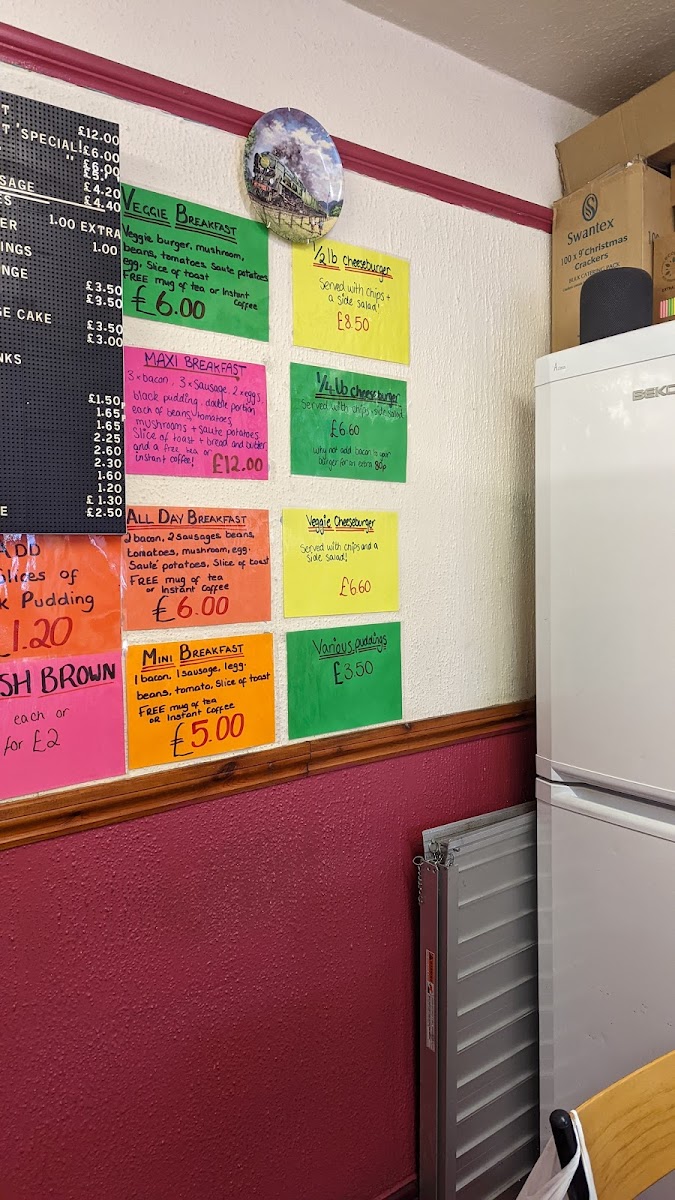 T £12.00
T 'SPECIAL! £6.00
" £6.00
£4.20
SAGE £4.40
ES
ER 1.00 EXTRA
INGS 1.00
NGE
£3.50
£9.50
GE CAKE
£3.50
£3.00
NKS
£1.50
1.65
1.65
2.25
2.60
2.30
1.60
1.20
£1.30
E £2.50
ADD
Slices of
k Pudding
£1.20
SH BROWN
each or
for £2
VEGGIE BREAKFAST
Veggie burger, mushroom,
beans, tomatoes, saute potatoes
egg, Slice of toast
FREE mug of tea or Instant
Coffee
£6.00
MAXI BREAKFAST
3 x bacon, 3 x sausage, 2 x eggs,
black pudding, double portion
each of beans, tomatoes
mushrooms + saute potatoes
Slice of toast + bread and butter
and a free tea or
instant coffee!
£12.00
ALL DAY BREAKFAST
2 bacon, 2 sausages, beans,
tomatoes, mushroom, egg.
Sauté potatoes, Slice of toast
FREE mug of tea
or Instant Coffee
£6.00
MINI BREAKFAST
1 bacon, 1 sausage, 1 egg.
beans, tomato, Slice of toast
FREE mug of tea
OR Instant Coffee
£5.00
1/2 lb cheeseburger
Served with chips +
a side salad!
£8.50
1/4 lb cheeseburger
Served with chips + side salad
£6.60
Why not add bacon to your
burger for an extra 80p
Veggie Cheeseburger
Served with chips and a
side salad!
£6.60
Various puddings
£3.50
Swantex
100 x 9" Christmas
Crackers
BULK CATERING PACK
BEKO